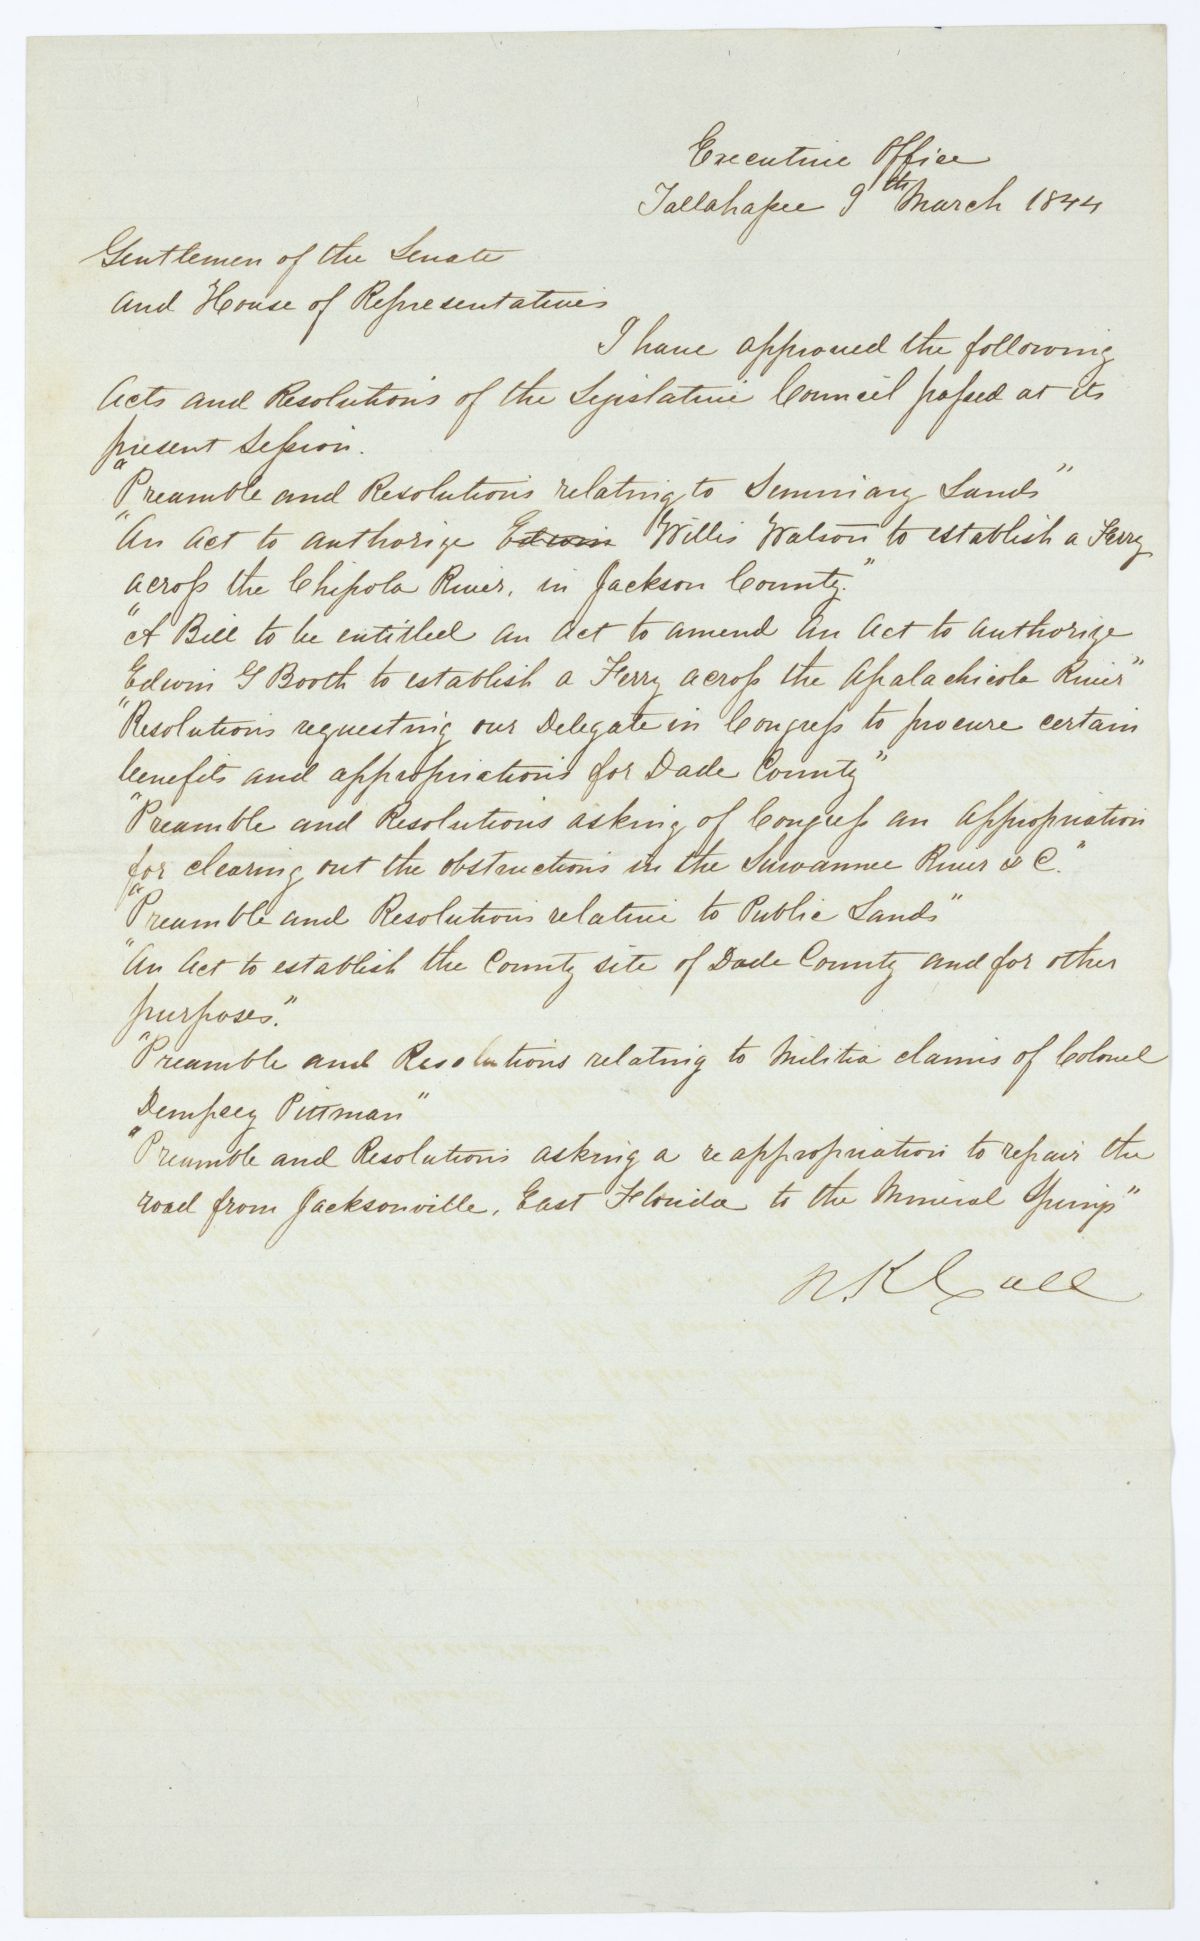 Executive Office
Tallahassee 9th March 1844
Gentlemen of the Senate
and House of Representatives
I have approved the following
Acts and Resolutions of the Legislative Council passed at its
present Session.
"Preamble and Resolutions relating to Seminary Lands"
"An Act to authorize Edwin Willis Watson to establish a Ferry
across the Chipola River, in Jackson County."
"A Bill to be entitled an act to amend an act to authorize
Edwin G Booth to establish a Ferry across the Apalachicola River"
"Resolutions requesting our Delegate in Congress to procure certain
benefits and appropriations for Dade County"
"Preamble and Resolutions asking of Congress an appropriation
for clearing out the obstructions in the Suwannee River & C."
"Preamble and Resolutions relative to Public Lands"
"An Act to establish the County site of Dade County and for other
purposes."
"Preamble and Resolutions relating to Militia claims of Colonel
Dempsey Pittman"
"Preamble and Resolutions asking a reappropriation to repair the
road from Jacksonville, East Florida to the Mineral Springs"
R. K. Call